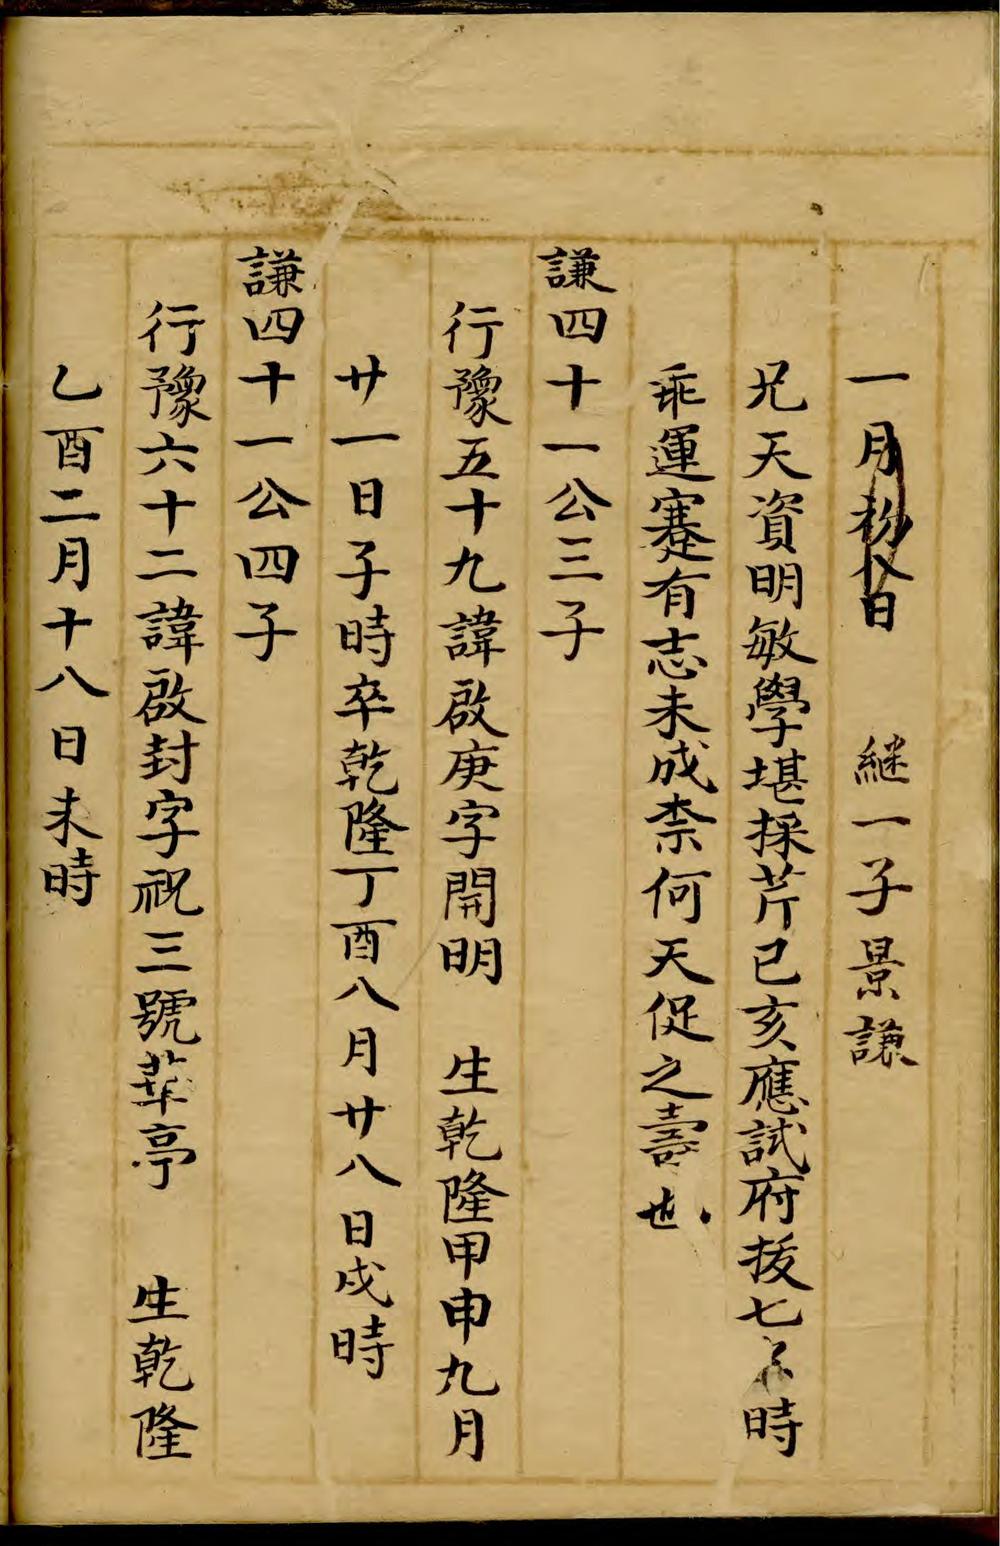 一月初八日　繼一子景謙
兄天資明敏學堪採芹已亥應試府拔七時
乖運蹇有志未成柰何天促之壽也
謙四十一公三子
行豫五十九諱啟庚字開明　生乾隆甲申九月
廿一日子時卒乾隆丁酉八月廿八日戌時
謙四十一公四子
行豫六十二諱啟封字祝三號華亭　生乾隆
乙酉二月十八日未時